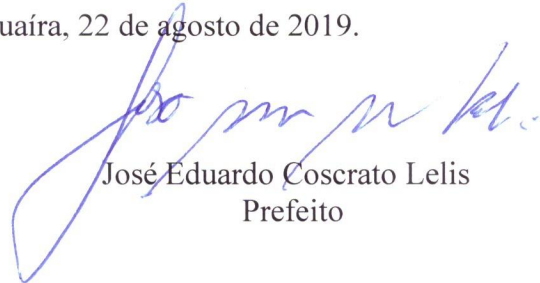 uaíra, 22 de agosto de 2019.
José Eduardo Coscrato Lelis
Prefeito